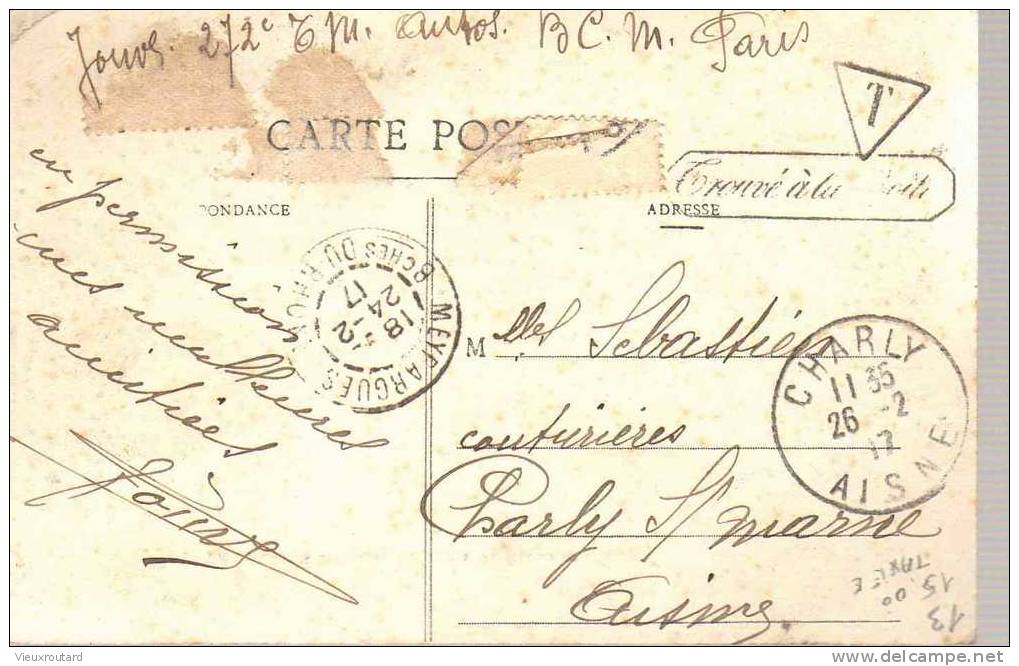 Jouve. 272e T M. Autos. B C. M. Paris
T
CARTE POS
Trouvé à la Boîte
PONDANCE
ADRESSE
en permission
mes meilleures
amitiés
Jouve
MEYRARGUES
BCHES DU RHÔNE
18
24 -2
17
CHARLY
11 35
26 -2
17
AISNE
Melles Sebastien
couturières
Charly S/ marne
Aisne
13
15.00
TAXEE
Vieuxroutard
www.delcampe.net